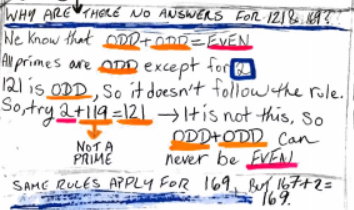 WHY ARE THERE NO ANSWERS FOR 121 & 169?
We know that ODD+ODD=EVEN
All primes are ODD except for 2
121 is ODD, So it doesn't follow the rule.
So, try 2+119=121 → It is not this, so
NOT A PRIME
ODD+ODD Can never be EVEN
SAME RULES APPLY FOR 169, But 167+2=
169.